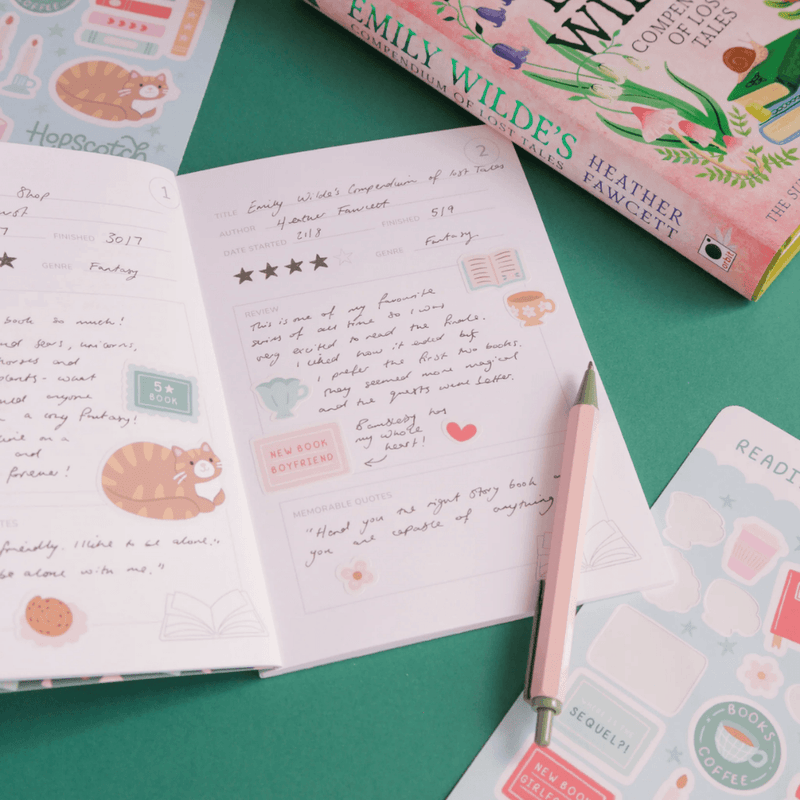 COFFEE
Hopscotch
EMILY WILDE'S
COMPENDIUM OF LOST TALES
HEATHER
FAWCETT
orbit
WIL
COMPEN
OF LOST
TALES
THE SUN
1
Shop
FINISHED 30/7
GENRE Fantasy
book so much!
and
plants - what
anyone
a cosy fantasy!
in a
and
forever!
5★
BOOK
friendly. I like to be alone."
be alone with me."
2
TITLE Emily Wilde's Compendium of lost Tales
AUTHOR Heather Fawcett
DATE STARTED 21/8 FINISHED 5/9
GENRE Fantasy.
REVIEW
This is one of my favourite
series of all time so I was
very excited to read the finale.
I liked how it ended but
I prefer the first two books.
They seemed more magical
and the quests were better.
Bambleby has
my whole
heart!
NEW BOOK
BOYFRIEND
MEMORABLE QUOTES
"Hand you the right story book
you are capable of anything
READI
SEQUEL?!
BOOKS
COFFEE
NEW BOOK
GIRLF